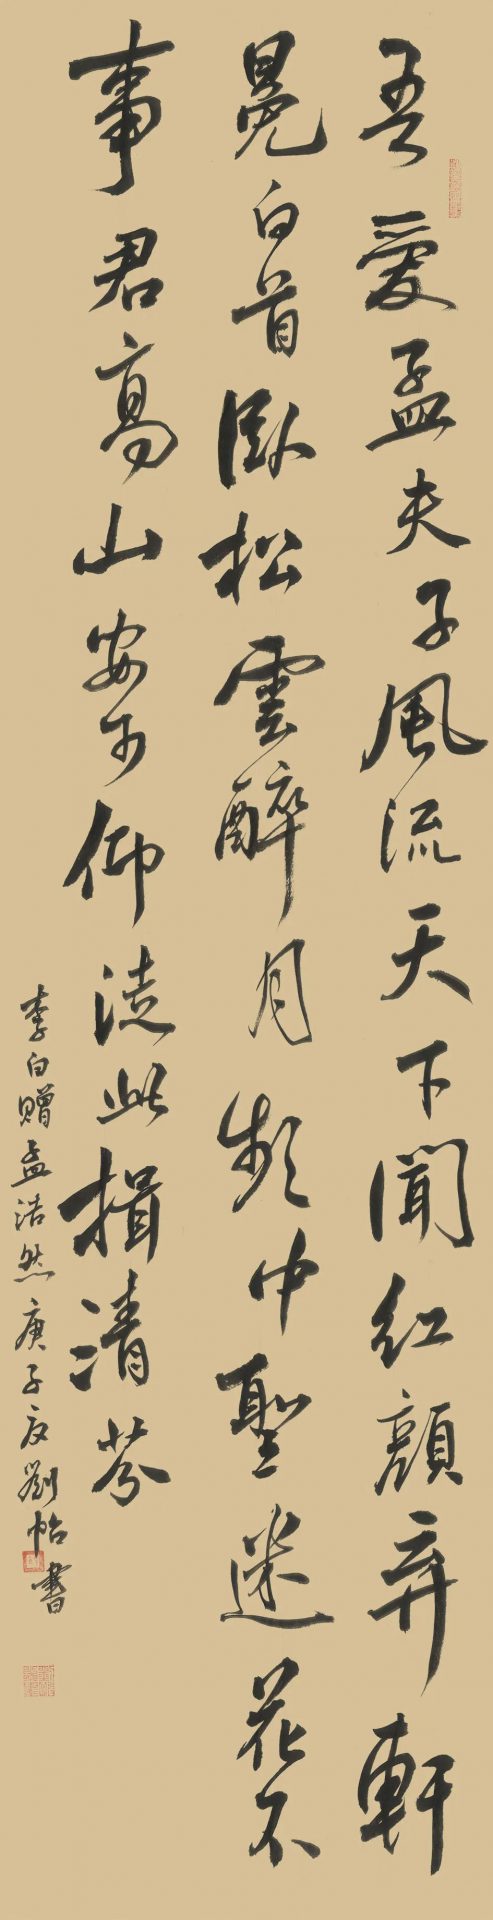 吾愛孟夫子風流天下聞紅顔弃軒
冕白首臥松雲醉月頻中聖迷花不
事君高山安可仰徒此揖清芬
李白赠孟浩然庚子夏劉怗書